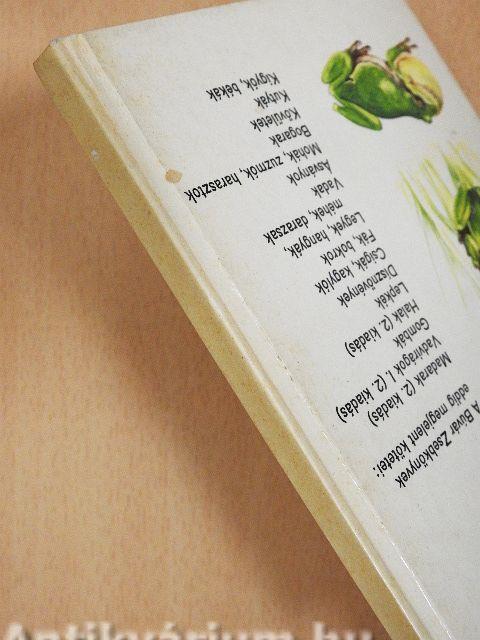 A Búvár Zsebkönyvek
eddig megjelent kötetei:
Madarak (2. kiadás)
Vadvirágok I. (2. kiadás)
Gombák
Halak (2. kiadás)
Lepkék
Dísznövények
Csigák, kagylók
Fák, bokrok
Legyek, hangyák,
méhek, darazsak
Vadak
Ásványok
Mohák, zuzmók, harasztok
Bogarak
Kövületek
Kutyák
Kígyók, békák
Antikvárium.hu